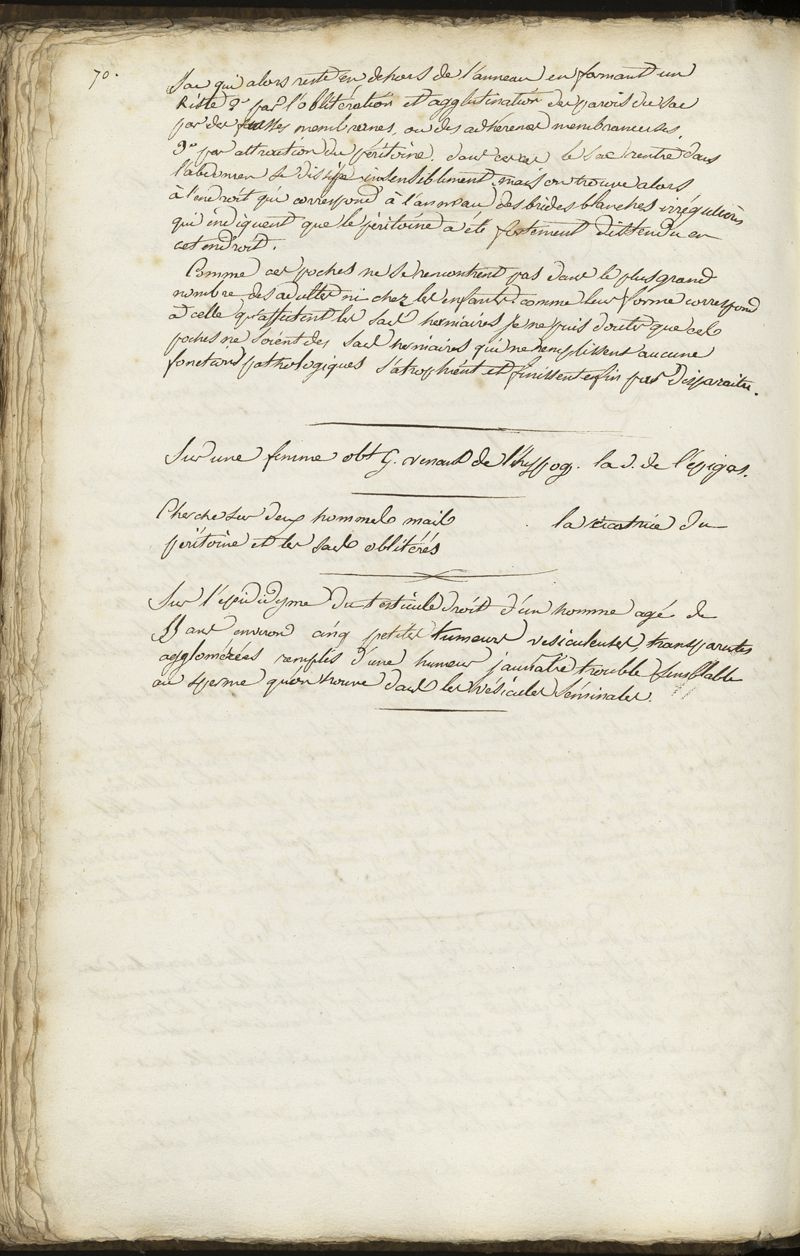 70.
Sac qui alors reste en dehors de l'anneau en formant un
Kiste 2° par l'oblitération et agglutination des parois du sac
par des fausses membranes, ou des adhérences membraneuses.
3° par attraction du péritoine. dans ce cas le sac rentre dans
l'abdomen se dissipe insensiblement mais on trouve alors
à l'endroit qui correspond à l'anneau des brides blanches irrégulières
qui indiquent que le péritoine a été fortement distendu en
cet endroit.
Comme ces poches ne se rencontrent pas dans le plus grand
nombre des adultes ni chez les enfants, comme leur forme correspond
à celle qu'affectent les sacs herniaires je ne puis douter que ces
poches ne soient des sacs herniaires qui ne remplissent aucune
fonctions pathologiques s'atrophient et finissent enfin par disparaitre.
Sur une femme obt G. venant de l'hypog. la d. de l'épigas.
Cherche sur deux hommes mais la cicatrice du
péritoine et les sacs oblitérés
Sur l'épididyme du testicule droit d'un homme agé de
55 ans environ cinq petites tumeurs vésiculeuses, transparentes
agglomérées remplis d'une humeur jaunatre trouble semblable
au sperme qu'on trouve dans les vésicules séminales.